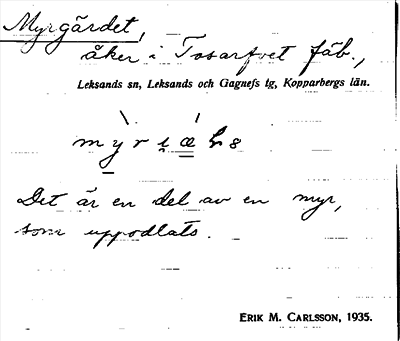 Myrgärdet,
åker i Tosarfvet fäb.,
Leksands sn, Leksands och Gagnefs tg, Kopparbergs län.
Det är en del av en myr,
som uppodlats.
ERIK M. CARLSSON, 1935.